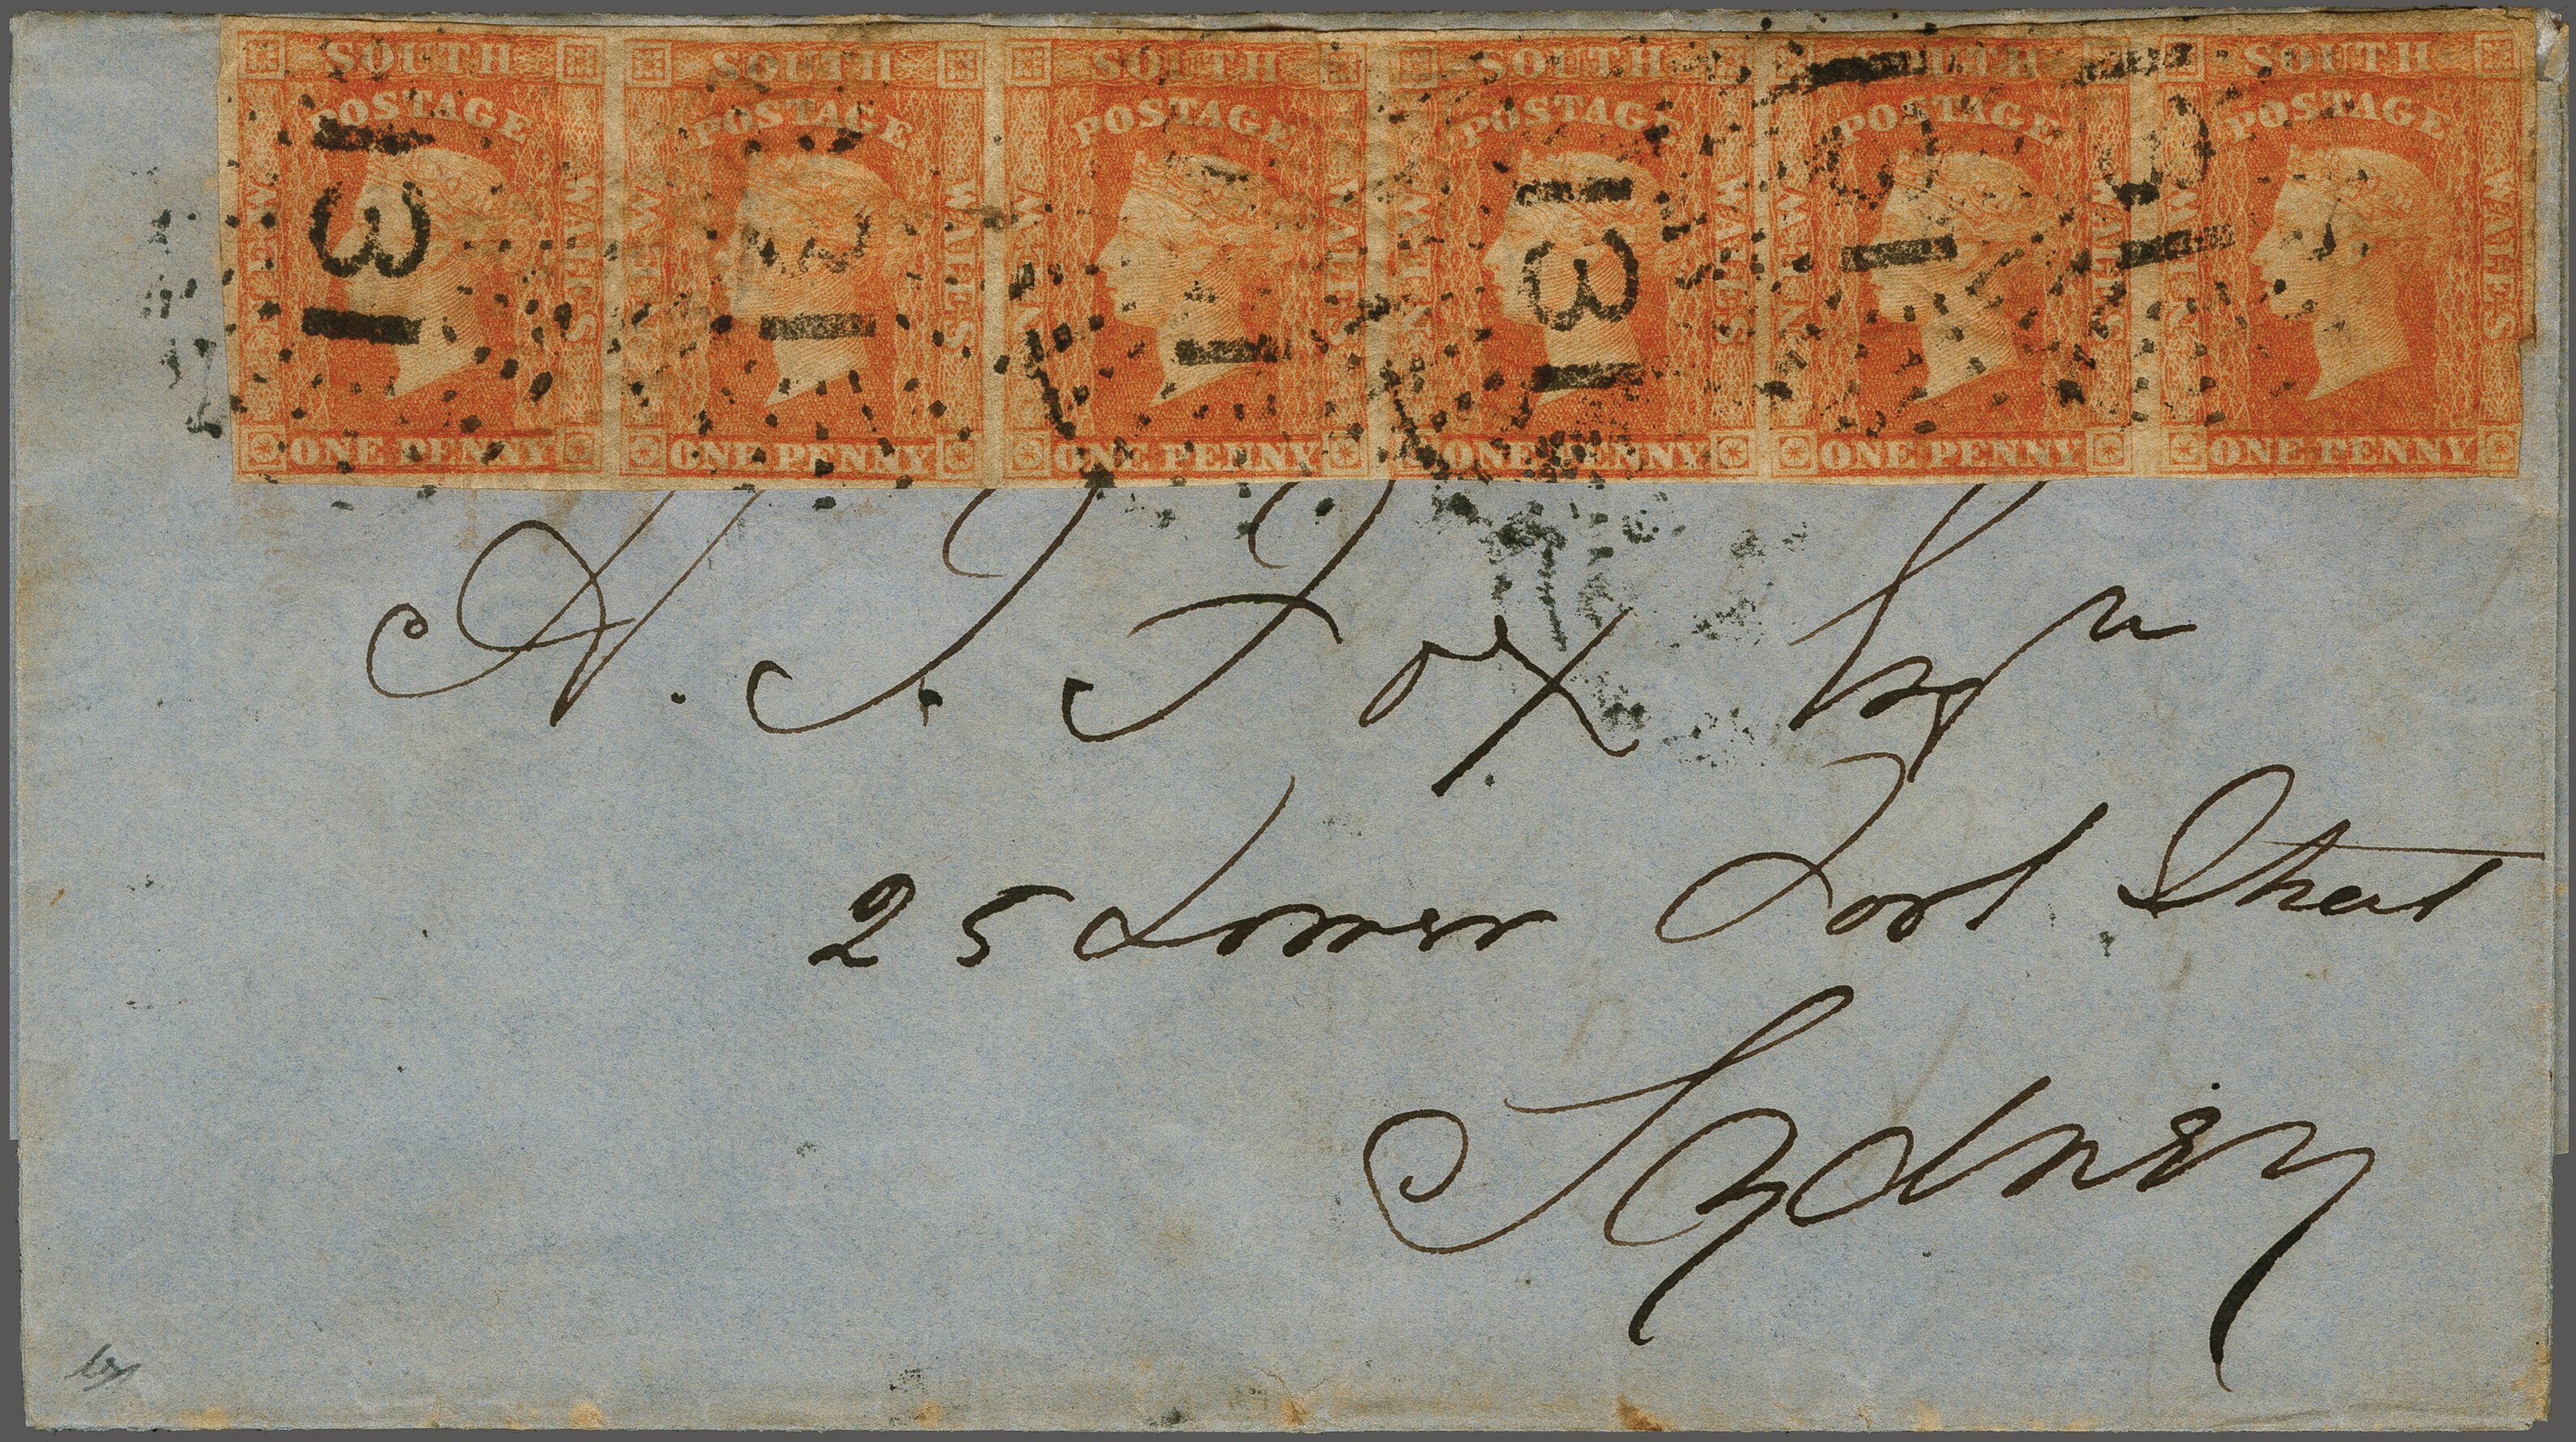 SOUTH SOUTH SOUTH SOUTH SOUTH SOUTH
POSTAGE POSTAGE POSTAGE POSTAGE POSTAGE POSTAGE
NEW WALES NEW WALES NEW WALES NEW WALES NEW WALES NEW WALES
131 131
ONE PENNY ONE PENNY ONE PENNY ONE PENNY ONE PENNY ONE PENNY
Fox Esqr
25 Lower Fort Street
Sydney